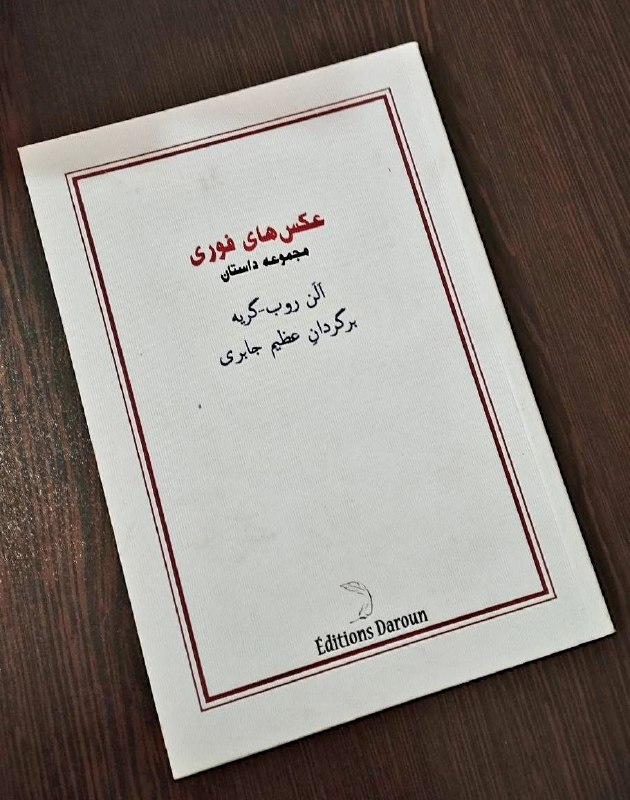 عکس‌های فوری
مجموعه داستان
آلن روب-گریه
برگردانِ عظیم جابری
Éditions Daroun